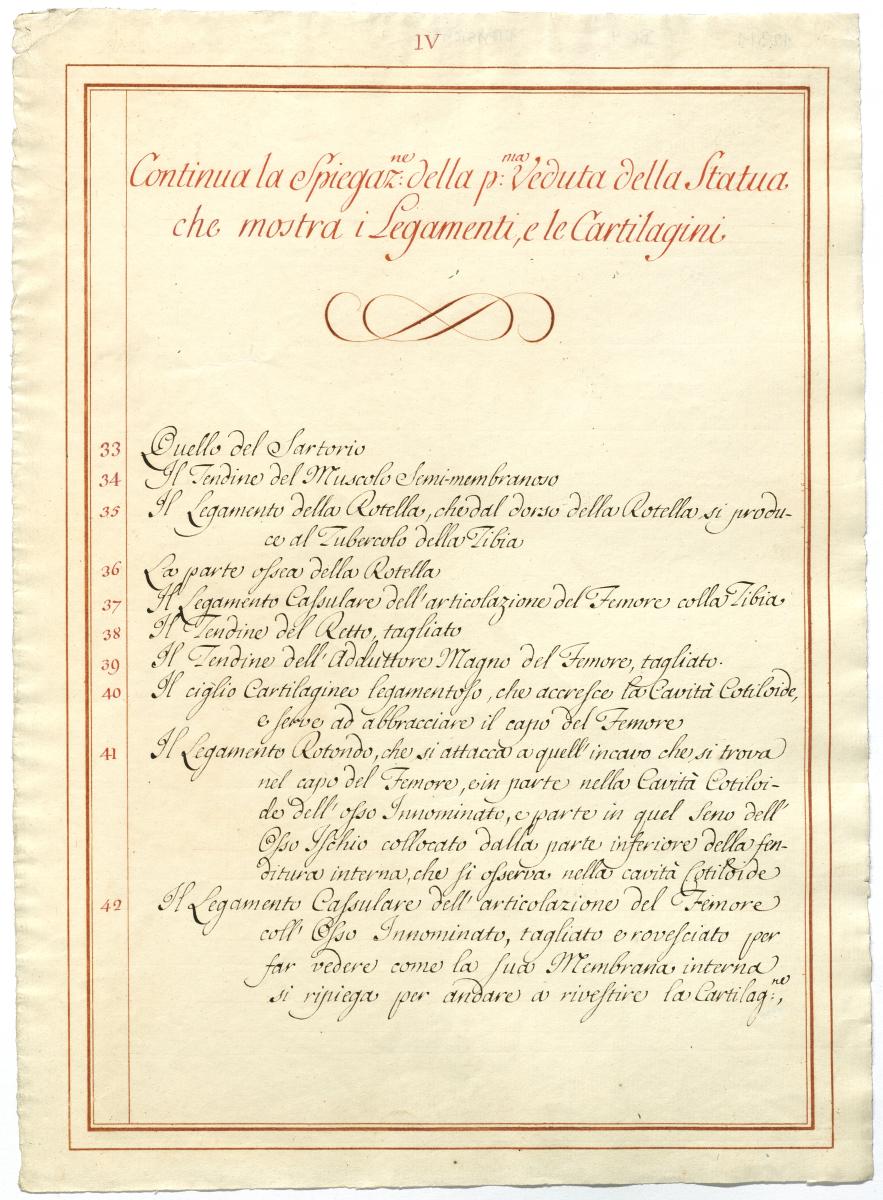 IV
Continua la Spiegaz:ne della p:ma Veduta della Statua
che mostra i Legamenti, e le Cartilagini
33 Quello del Sartorio
34 Il Tendine del Muscolo Semi-membranoso
35 Il Legamento della Rotella, che dal dorso della Rotella si produ-
ce al Tubercolo della Tibia
36 La parte ossea della Rotella
37 Il Legamento Cassulare dell'articolazione del Femore colla Tibia
38 Il Tendine del Retto, tagliato
39 Il Tendine dell'Adduttore Magno del Femore, tagliato.
40 Il ciglio Cartilagineo legamentoso, che accresce la Cavità Cotiloide,
e serve ad abbracciare il capo del Femore
41 Il Legamento Rotondo, che si attacca a quell'incavo che si trova
nel capo del Femore, e in parte nella Cavità Cotiloi-
de dell'osso Innominato, e parte in quel Seno dell'
Osso Ischio collocato dalla parte inferiore della fen-
ditura interna, che si osserva nella cavità Cotiloide
42 Il Legamento Cassulare dell'articolazione del Femore
coll'Osso Innominato, tagliato e rovesciato per
far vedere come la sua Membrana interna
si ripiega per andare a rivestire la Cartilag:ne,